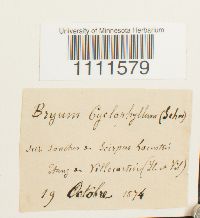 University of Minnesota Herbarium
1111579
Bryum Cyclophyllum (Schw)
sur souches de Scirpus lacustris
Etang de Villecartier (Il. et Vil)
19 Octobre 1874